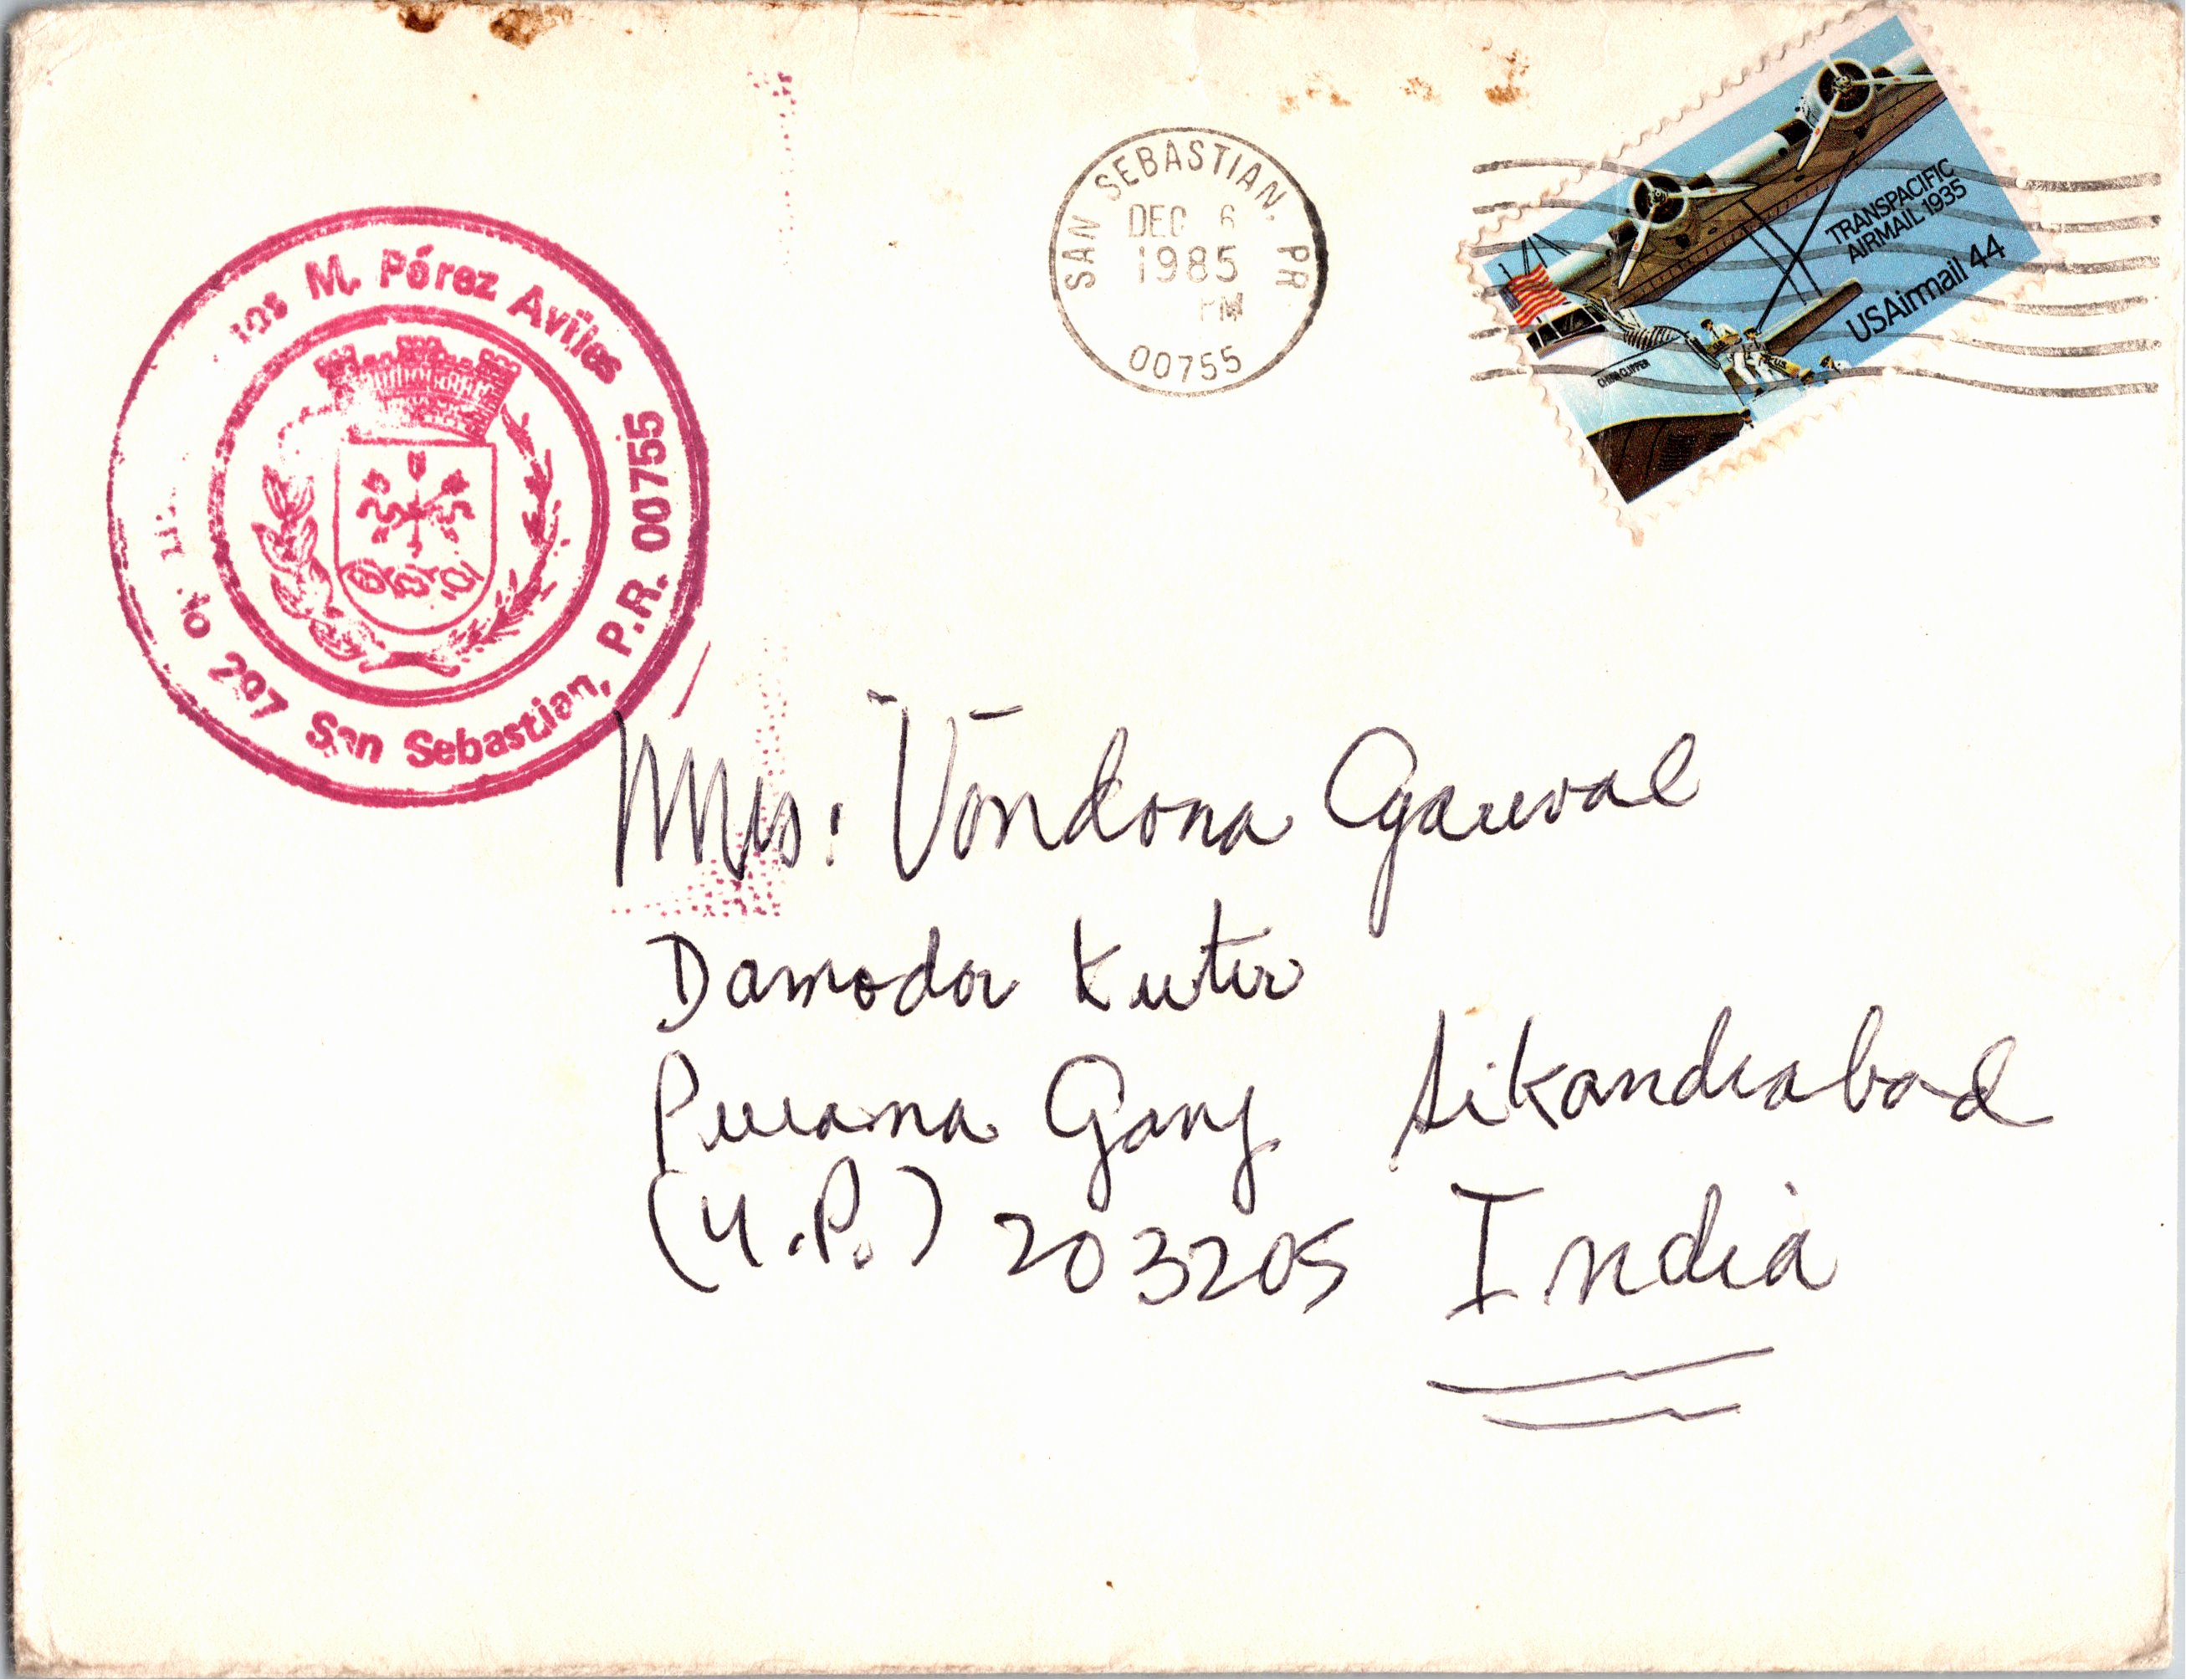 M. Pérez Aviles
297 San Sebastian, P.R. 00755
SAN SEBASTIAN, PR
DEC 6
1985
PM
00755
TRANSPACIFIC
AIRMAIL 1935
USAirmail 44
CHINA CLIPPER
Mrs. Vandana Agarwal
Damodar Kutir
Purana Ganj Sikandrabad
(U.P.) 203205 India